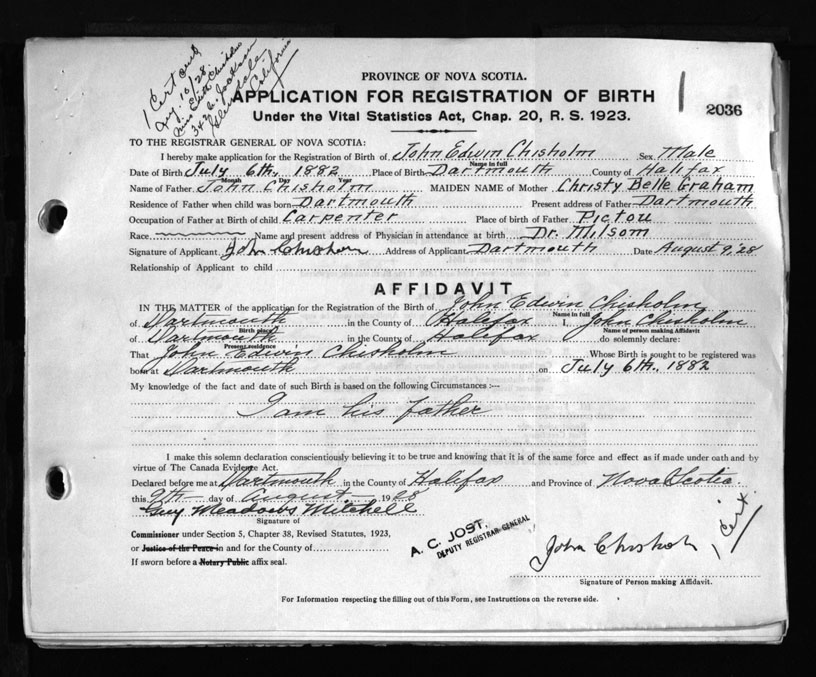 1 Cert
Aug. 10/28.
Miss Edith Chisholm
Glendale
California
PROVINCE OF NOVA SCOTIA.
APPLICATION FOR REGISTRATION OF BIRTH
Under the Vital Statistics Act, Chap. 20, R. S. 1923.
2036
TO THE REGISTRAR GENERAL OF NOVA SCOTIA:
I hereby make application for the Registration of Birth of John Edwin Chisholm Sex Male
Name in full
Date of Birth July 6th, 1882 Place of Birth Dartmouth County of Halifax
Month Day Year
Name of Father John Chisholm MAIDEN NAME of Mother Christy Belle Graham
Residence of Father when child was born Dartmouth Present address of Father Dartmouth
Occupation of Father at Birth of child Carpenter Place of birth of Father Pictou
Race Name and present address of Physician in attendance at birth Dr. Milsom
Signature of Applicant John Chisholm Address of Applicant Dartmouth Date August 9, '28
Relationship of Applicant to child
AFFIDAVIT
IN THE MATTER of the application for the Registration of the Birth of John Edwin Chisholm
Name in full
of Dartmouth in the County of Halifax I, John Chisholm
Birth place Name of person making Affidavit
of Dartmouth in the County of Halifax do solemnly declare:
Present residence
That John Edwin Chisholm Whose Birth is sought to be registered was
born at Dartmouth on July 6th, 1882
My knowledge of the fact and date of such Birth is based on the following Circumstances :—
I am his father
I make this solemn declaration conscientiously believing it to be true and knowing that it is of the same force and effect as if made under oath and by
virtue of The Canada Evidence Act.
Declared before me at Dartmouth in the County of Halifax and Province of Nova Scotia.
this 9th day of August 1928
Guy Meadows Mitchell
Signature of
Commissioner under Section 5, Chapter 38, Revised Statutes, 1923,
or Justice of the Peace in and for the County of
If sworn before a Notary Public affix seal.
A. C. JOST,
DEPUTY REGISTRAR-GENERAL
John Chisholm
1 Cert
Signature of Person making Affidavit.
For Information respecting the filling out of this Form, see Instructions on the reverse side.